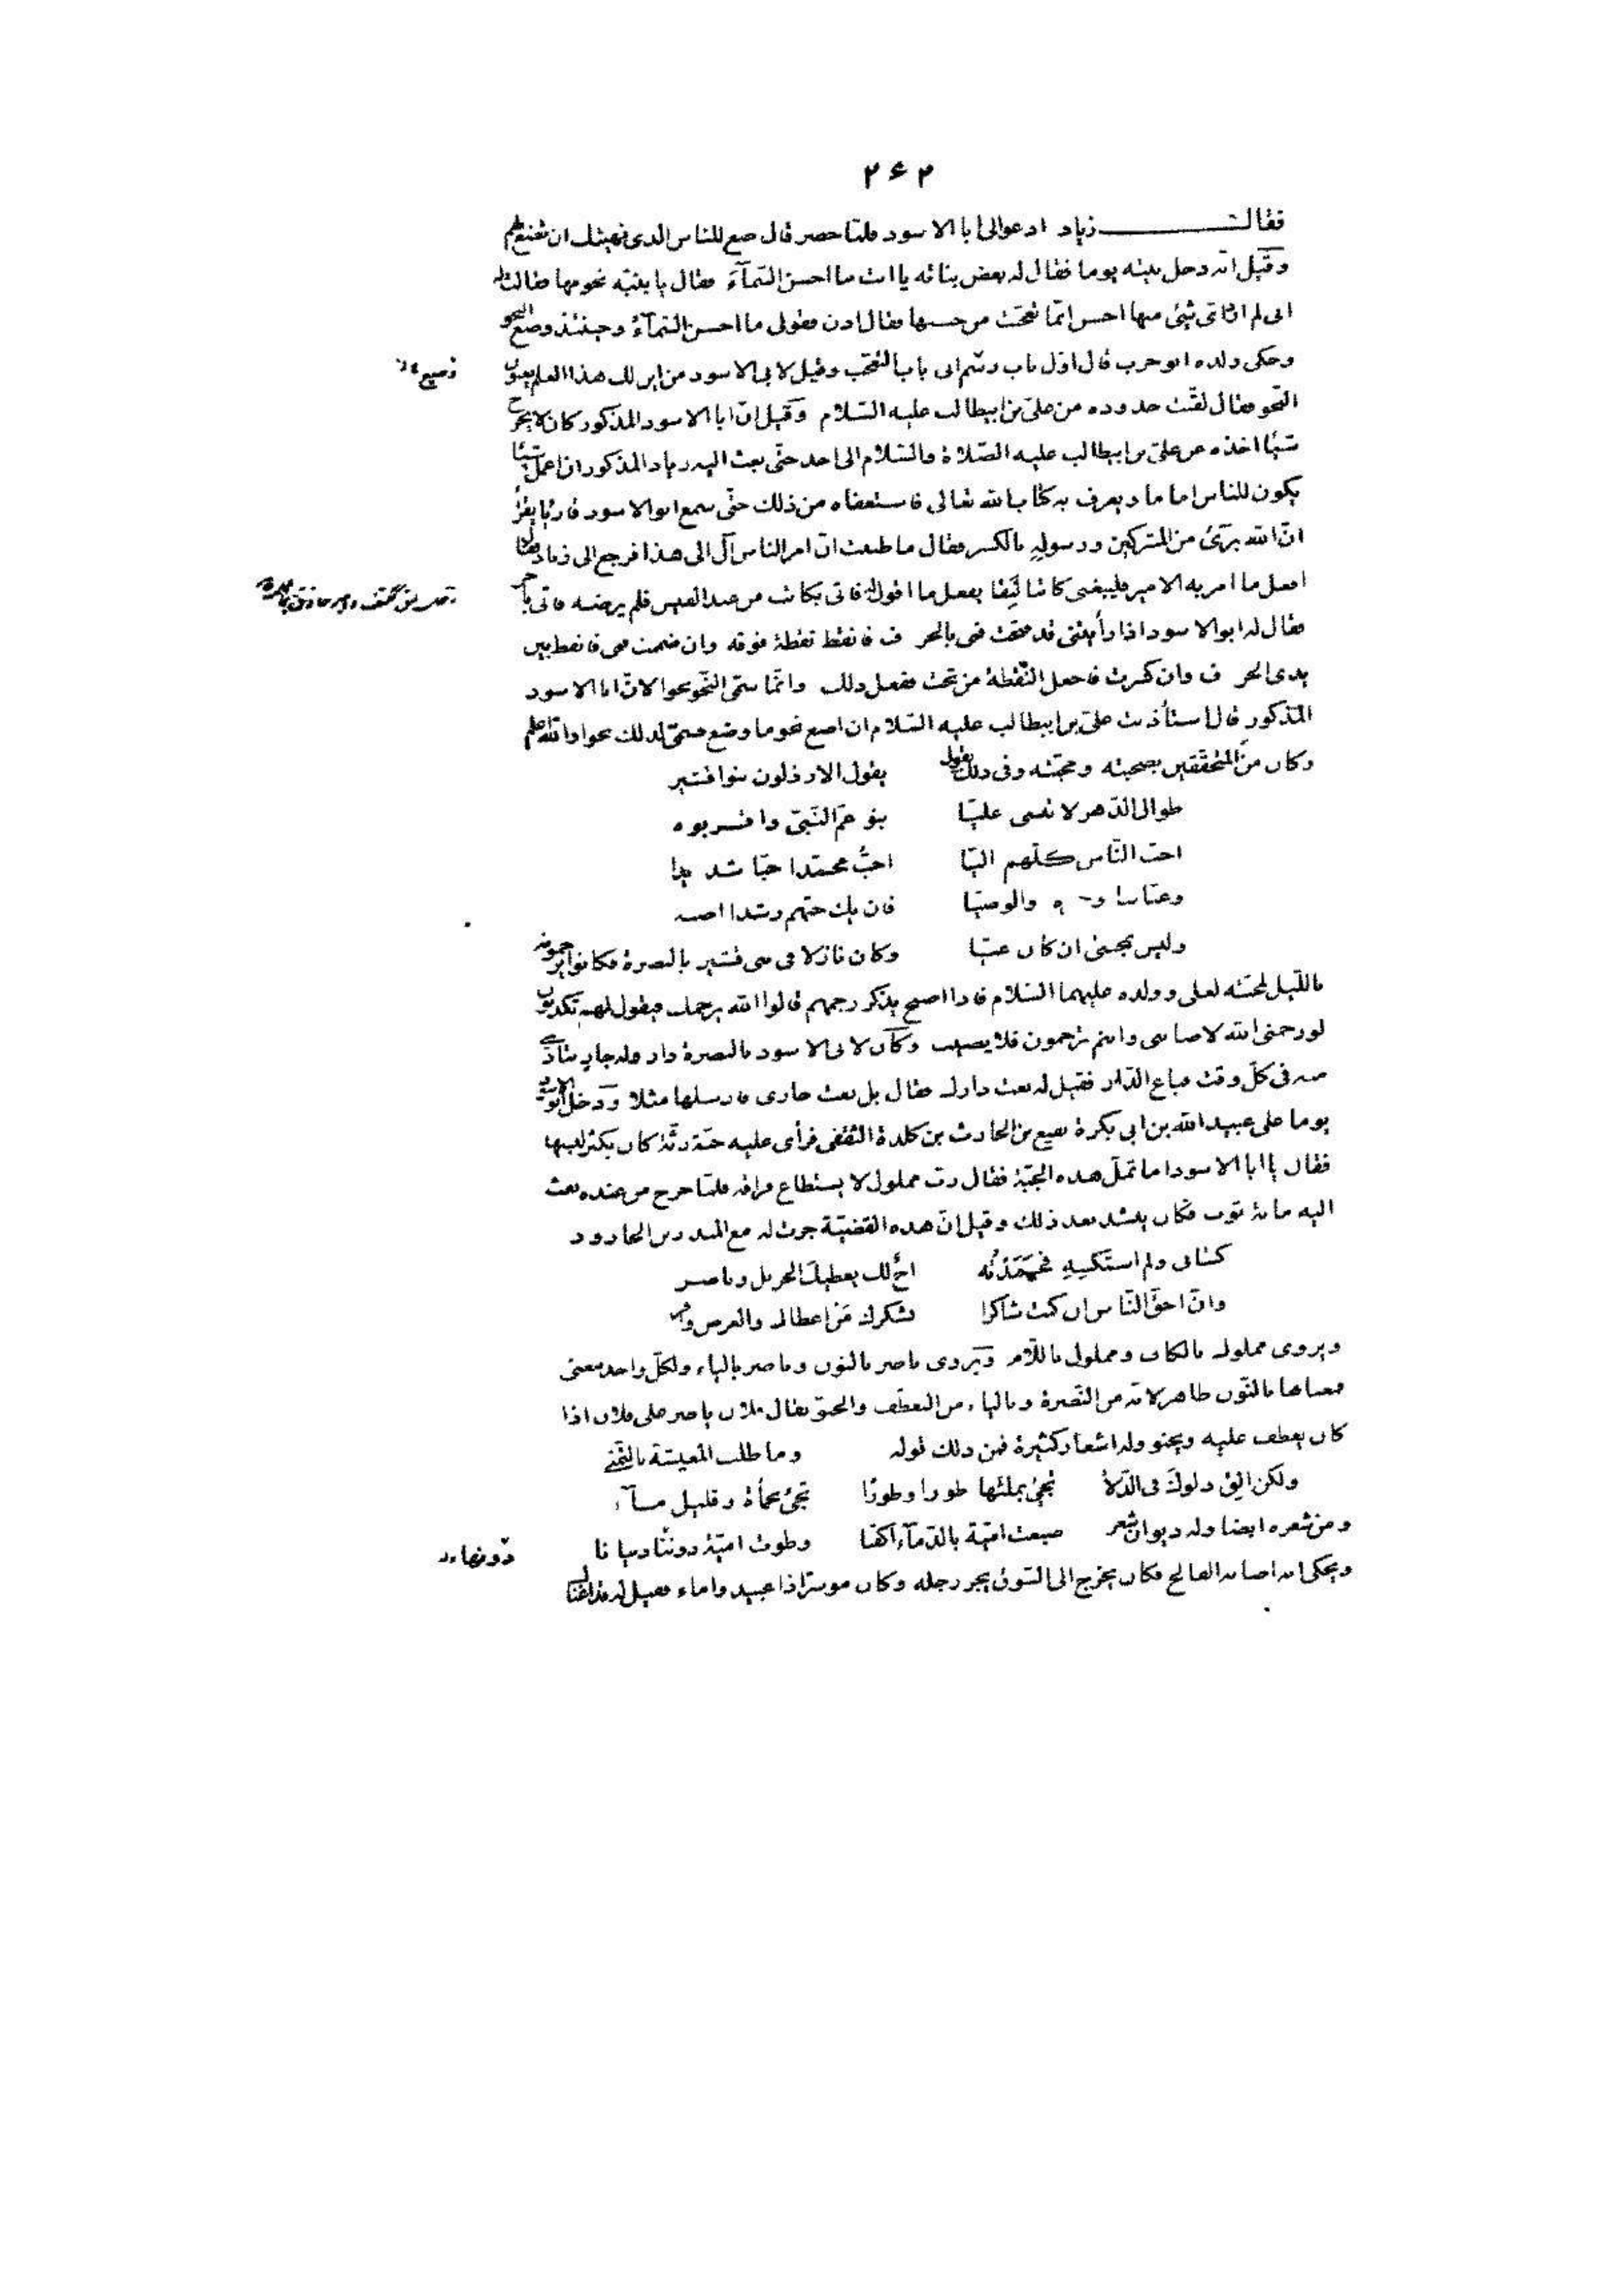 ۲۶۲
فقالــــــــ زياد ادعوا الى ابا الاسود فلما حضر قال ضع للناس الذى نهيتك ان تضع لهم
وقيل انه دخل بيته يوما فقال له بعض بناته يا ابت ما احسن السماءَ فقال يا بنية نجومها فقالت له
انى لم ارد اى شئ منها احسن انما تعجبت من حسنها فقال اذن فقولى ما احسن السماءَ وحينئذ وضع النحو
وحكى ولده ابو حرب قال اول باب رسم ابى باب التعجب وقيل لابى الاسود من اين لك هذا العلم يعنون
النحو فقال لقنت حدوده من على بن ابيطالب عليه السلام وقيل ان ابا الاسود المذكور كان لا يخرج
شيئا اخذه عن على بن ابيطالب عليه الصلاة والسلام الى احد حتى بعث اليه زياد المذكور ان اعمل شيئا
يكون للناس اماما ويعرف به كتاب الله تعالى فاستعفاه من ذلك حتى سمع ابو الاسود قارئا يقرأ
ان الله برئ من المشركين ورسولِهِ بالكسر فقال ما ظننت ان امر الناس آل الى هذا فرجع الى زياد فقال
افعل ما امر به الامير فليبغنى كاتبا لَقِنًا يفعل ما اقول له فاتى بكاتب من عبد القيس فلم يرضه فاتى بآخر
فقال له ابو الاسود اذا رأيتنى قد فتحت فمى بالحرف فانقط نقطة فوقه وان ضممت فمى فانقط بين
يدى الحرف وان كسرت فاجعل النقطة من تحت ففعل ذلك وانما سمى النحو نحوا لان ابا الاسود
المذكور قال استأذنت على بن ابيطالب عليه السلام ان اضع نحو ما وضع فسمى لذلك نحوا والله اعلم
وكان من المتحققين بصحبته ومحبته وفى ذلك يقول يقول الارذلون بنو قشير
طوال الدهر لا تنسى عليا بنو عم النبى واقربوه
احب الناس كلهم اليا احبُّ محمدا حبا شديدا
وعباسا و والوصيا فان يك حبهم رشدا اصبه
وليس بمخطئ ان كان غيا وكان نازلا فى بنى قشير بالبصرة فكانوا يرجمونه
بالليل لمحبته لعلى وولده عليهما السلام فاذا اصبح يذكر رجمهم قالوا الله يرجمك فيقول لهم تكذبون
لو رجمنى الله لاصابنى وانتم ترجمون فلا يصيب وكان لابى الاسود بالبصرة دار وله جار يتأذى
منه فى كل وقت فباع الدار فقيل له بعت دارك فقال بل بعت جارى فارسلها مثلا ودخل ابو الاسود
يوما على عبيد الله بن ابى بكرة نفيع بن الحارث بن كلدة الثقفى فرأى عليه جبة رثة كان يكثر لبسها
فقال يا ابا الاسود اما تمل هذه الجبة فقال رب مملول لا يستطاع فراقه فلما خرج من عنده بعث
اليه مائة ثوب فكان ينشد بعد ذلك وقيل ان هذه القضية جرت له مع المنذر بن الجارود
كسانى ولم استكسِهِ فحَمَدْتُه اخٌ لك يعطيك الجزيل وناصر
وان احق الناس ان كنت شاكرا بشكرك مَن اعطاك والعرض وافر
ويروى مملوك بالكاف ومملول باللام ويروى ناصر بالنون وياصر بالياء ولكل واحد معنى
فمعناها بالنون ظاهر لانه من النصرة وبالياء من التعطف والحنو يقال فلان ياصر على فلان اذا
كان يعطف عليه ويحنو وله اشعار كثيرة فمن ذلك قوله وما طلب المعيشة بالتمنى
ولكن الق دلوك فى الدلاء تجئ بملئها طورا وطورًا تجئ بحمأة وقليل ماء
ومن شعره ايضا وله ديوان شعر صبغت امية بالدماء اكفنا وطوت امية دوننا دنيانا
دونها
ويحكى انه اصابه الفالج فكان يخرج الى السوق يجر رجله وكان موسرا ذا عبيد واماء فقيل له قد اغناك